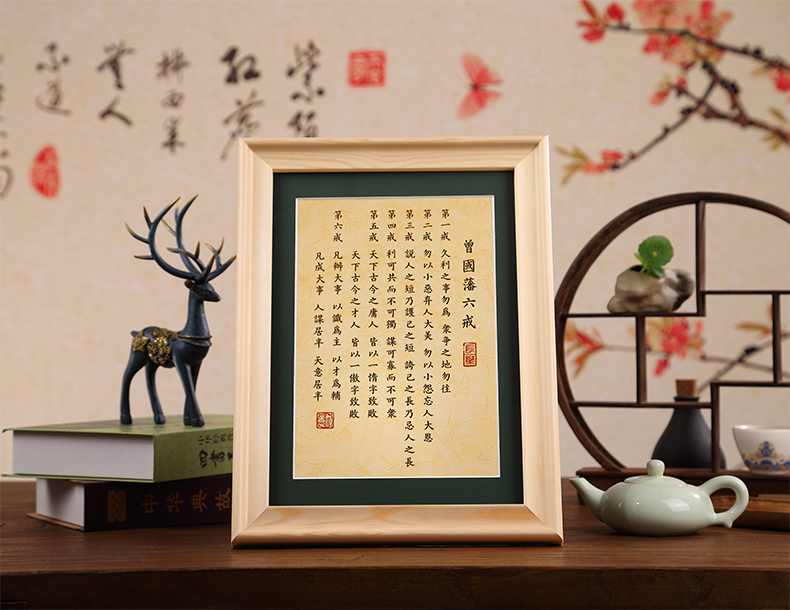 紫陌
紅塵
拂面来
無人
不道
曾國藩六戒
第一戒 久利之事勿爲 衆爭之地勿往
第二戒 勿以小惡弃人大美 勿以小怨忘人大恩
第三戒 説人之短乃護己之短 誇己之長乃忌人之長
第四戒 利可共而不可獨 謀可寡而不可衆
第五戒 天下古今之庸人 皆以一惰字致敗
天下古今之才人 皆以一傲字致敗
第六戒 凡辦大事 以識爲主 以才爲輔
凡成大事 人謀居半 天意居半
四書
中华典故